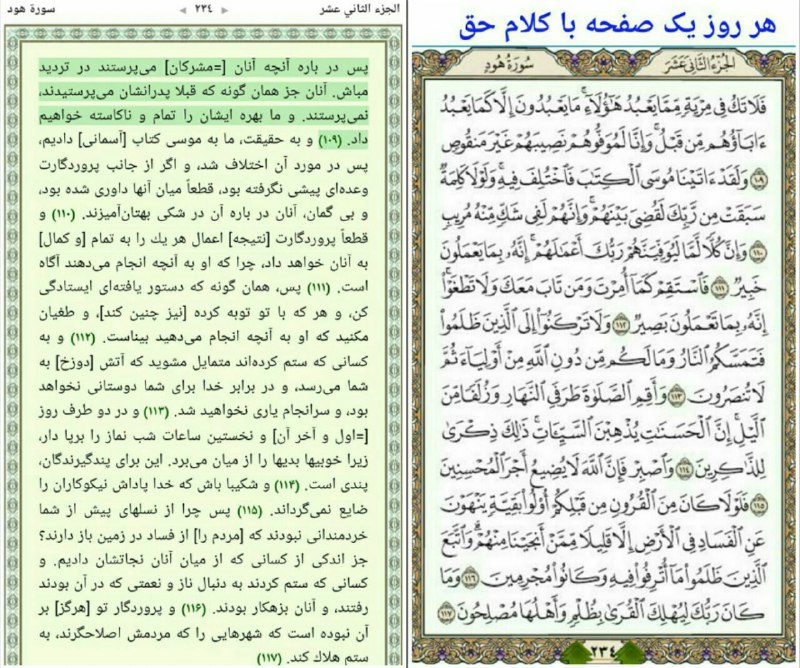 هر روز یک صفحه با کلام حق
الجزء الثاني عشر
سورة هود
فَلَا تَكُ فِي مِرْيَةٍ مِّمَّا يَعْبُدُ هَٰٓؤُلَآءِ ۚ مَا يَعْبُدُونَ إِلَّا كَمَا يَعْبُدُ
ءَابَآؤُهُم مِّن قَبْلُ ۚ وَإِنَّا لَمُوَفُّوهُمْ نَصِيبَهُمْ غَيْرَ مَنقُوصٍ
١٠٩ وَلَقَدْ ءَاتَيْنَا مُوسَى ٱلْكِتَٰبَ فَٱخْتُلِفَ فِيهِ ۚ وَلَوْلَا كَلِمَةٌ
سَبَقَتْ مِن رَّبِّكَ لَقُضِيَ بَيْنَهُمْ ۚ وَإِنَّهُمْ لَفِي شَكٍّ مِّنْهُ مُرِيبٍ
١١٠ وَإِنَّ كُلًّا لَّمَّا لَيُوَفِّيَنَّهُمْ رَبُّكَ أَعْمَٰلَهُمْ ۚ إِنَّهُۥ بِمَا يَعْمَلُونَ
خَبِيرٌ ١١١ فَٱسْتَقِمْ كَمَآ أُمِرْتَ وَمَن تَابَ مَعَكَ وَلَا تَطْغَوْا۟ ۚ
إِنَّهُۥ بِمَا تَعْمَلُونَ بَصِيرٌ ١١٢ وَلَا تَرْكَنُوٓا۟ إِلَى ٱلَّذِينَ ظَلَمُوا۟
فَتَمَسَّكُمُ ٱلنَّارُ وَمَا لَكُم مِّن دُونِ ٱللَّهِ مِنْ أَوْلِيَآءَ ثُمَّ
لَا تُنصَرُونَ ١١٣ وَأَقِمِ ٱلصَّلَوٰةَ طَرَفَيِ ٱلنَّهَارِ وَزُلَفًا مِّنَ
ٱلَّيْلِ ۚ إِنَّ ٱلْحَسَنَٰتِ يُذْهِبْنَ ٱلسَّيِّـَٔاتِ ۚ ذَٰلِكَ ذِكْرَىٰ
لِلذَّٰكِرِينَ ١١٤ وَٱصْبِرْ فَإِنَّ ٱللَّهَ لَا يُضِيعُ أَجْرَ ٱلْمُحْسِنِينَ
١١٥ فَلَوْلَا كَانَ مِنَ ٱلْقُرُونِ مِن قَبْلِكُمْ أُو۟لُوا۟ بَقِيَّةٍ يَنْهَوْنَ
عَنِ ٱلْفَسَادِ فِي ٱلْأَرْضِ إِلَّا قَلِيلًا مِّمَّنْ أَنجَيْنَا مِنْهُمْ ۗ وَٱتَّبَعَ
ٱلَّذِينَ ظَلَمُوا۟ مَآ أُتْرِفُوا۟ فِيهِ وَكَانُوا۟ مُجْرِمِينَ ١١٦ وَمَا
كَانَ رَبُّكَ لِيُهْلِكَ ٱلْقُرَىٰ بِظُلْمٍ وَأَهْلُهَا مُصْلِحُونَ ١١٧
٢٣٤
الجزء الثاني عشر ٢٣٤ سورة هود
پس در باره آنچه آنان [=مشرکان] می‌پرستند در تردید
مباش. آنان جز همان گونه که قبلا پدرانشان می‌پرستیدند،
نمی‌پرستند. و ما بهره ایشان را تمام و ناکاسته خواهیم
داد. (۱۰۹) و به حقیقت، ما به موسی کتاب [آسمانی] دادیم،
پس در مورد آن اختلاف شد، و اگر از جانب پروردگارت
وعده‌ای پیشی نگرفته بود، قطعاً میان آنها داوری شده بود،
و بی گمان، آنان در باره آن در شکی بهتان‌آمیزند. (۱۱۰) و
قطعاً پروردگارت [نتیجه] اعمال هر یك را به تمام [و کمال]
به آنان خواهد داد، چرا که او به آنچه انجام می‌دهند آگاه
است. (۱۱۱) پس، همان گونه که دستور یافته‌ای ایستادگی
کن، و هر که با تو توبه کرده [نیز چنین کند]، و طغیان
مکنید که او به آنچه انجام می‌دهید بیناست. (۱۱۲) و به
کسانی که ستم کرده‌اند متمایل مشوید که آتش [دوزخ] به
شما می‌رسد، و در برابر خدا برای شما دوستانی نخواهد
بود، و سرانجام یاری نخواهید شد. (۱۱۳) و در دو طرف روز
[=اول و آخر آن] و نخستین ساعات شب نماز را برپا دار،
زیرا خوبیها بدیها را از میان می‌برد. این برای پندگیرندگان،
پندی است. (۱۱۴) و شکیبا باش که خدا پاداش نیکوکاران را
ضایع نمی‌گرداند. (۱۱۵) پس چرا از نسلهای پیش از شما
خردمندانی نبودند که [مردم را] از فساد در زمین باز دارند؟
جز اندکی از کسانی که از میان آنان نجاتشان دادیم. و
کسانی که ستم کردند به دنبال ناز و نعمتی که در آن بودند
رفتند، و آنان بزهکار بودند. (۱۱۶) و پروردگار تو [هرگز] بر
آن نبوده است که شهرهایی را که مردمش اصلاحگرند، به
ستم هلاك کند. (۱۱۷)